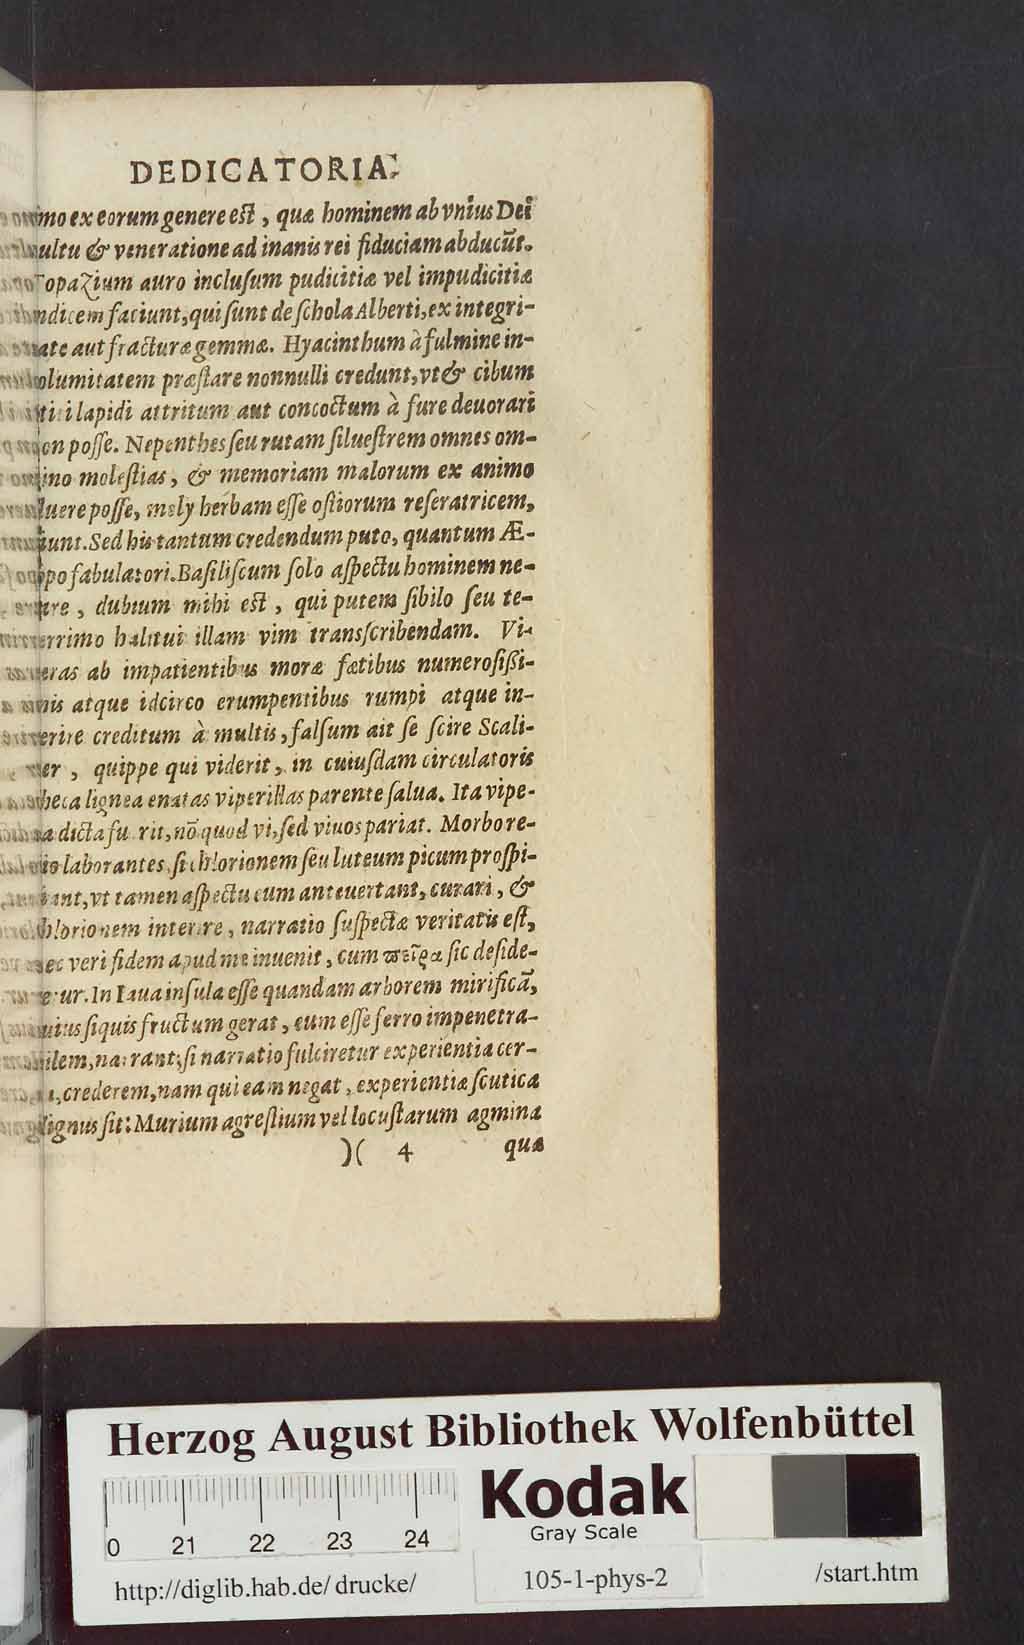 DEDICATORIA.
imo ex eorum genere est, quæ hominem ab vnius Dei
cultu & veneratione ad inanis rei fiduciam abducūt.
TopaZium auro inclusum pudicitiæ vel impudicitiæ
indicem faciunt, qui sunt de schola Alberti, ex integri-
tate aut fracturæ gemmæ. Hyacinthum à fulmine in-
columitatem præstare nonnulli credunt, vt & cibum
isti lapidi attritum aut concoctum à fure deuorari
non posse. Nepenthes seu rutam siluestrem omnes om-
nino molestias, & memoriam malorum ex animo
luere posse, moly herbam esse ostiorum reseratricem,
aiunt. Sed his tantum credendum puto, quantum Æ-
sopo fabulatori. Basiliscum solo aspectu hominem ne-
care, dubium mihi est, qui putem sibilo seu te-
terrimo halitui illam vim transcribendam. Vi-
peras ab impatientibus moræ fœtibus numerosissi-
mis atque idcirco erumpentibus rumpi atque in-
terire creditum à multis, falsum ait se scire Scali-
ger, quippe qui viderit, in cuiusdam circulatoris
theca lignea enatas viperillas parente salua. Ita vipe-
ra dicta fu rit, nō quod vi, sed viuos pariat. Morbo re-
gio laborantes, si chlorionem seu luteum picum prospi-
ciant, vt tamen aspectu eum anteuertant, curari, &
chlorionem interire, narratio suspectæ veritatis est,
nec veri fidem apud me inuenit, cum πεῖρα sic deside-
retur. In Iaua insula esse quandam arborem mirificā,
cuius siquis fructum gerat, eum esse ferro impenetra-
bilem, narrant; si narratio fulciretur experientia cer-
ta, crederem, nam qui eam negat, experientiæ scutica
dignus sit: Murium agrestium vel locustarum agmina
)( 4 quæ
Herzog August Bibliothek Wolfenbüttel
Kodak
Gray Scale
0 21 22 23 24
http://diglib.hab.de/drucke/ 105-1-phys-2 /start.htm